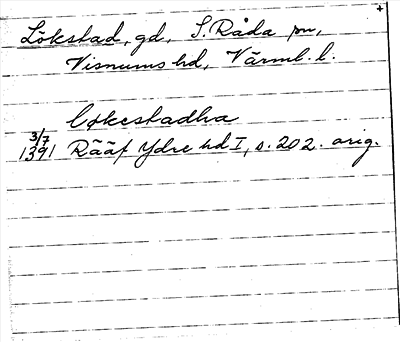 +
Lökstad, gd, S. Råda sn,
Visnums hd, Värml. l.
Løkestadha
3/7
1391 Rääf Ydre hd I, s. 202. orig.